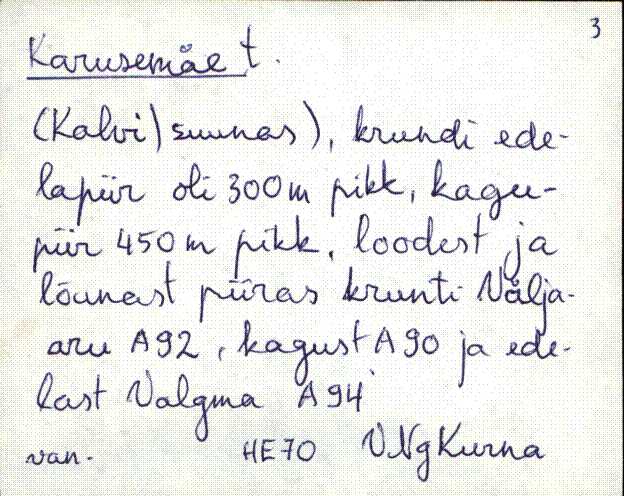 3
Karusemäe t.
(Kalvi) suunas), krundi ede-
lapiir oli 300 m pikk, kagu-
piir 450 m pikk, loodest ja
lõunast piiras krunti Välja-
aru A92, kagust A90 ja ede-
last Valgma A94
van. HE70 VNg Kurna